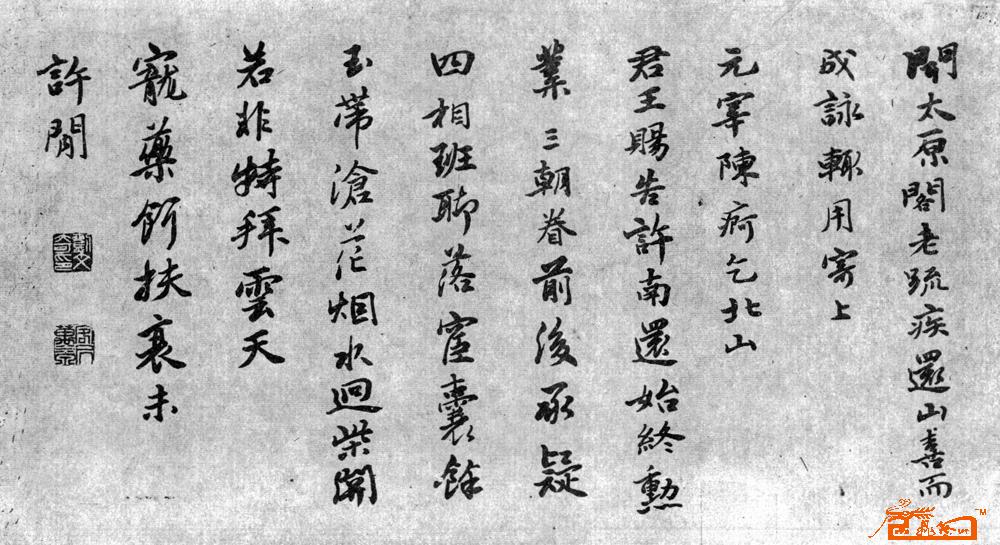 聞太原閣老疏疾還山喜而
成詠輙用寄上
元宰陳痾乞北山
君王賜告許南還始終勳
業三朝眷前後承疑
四相班聊落窪囊餘
玉帶滄茫烟水迥柴關
若非特拜雲天
寵藥餌扶衰未
許閒